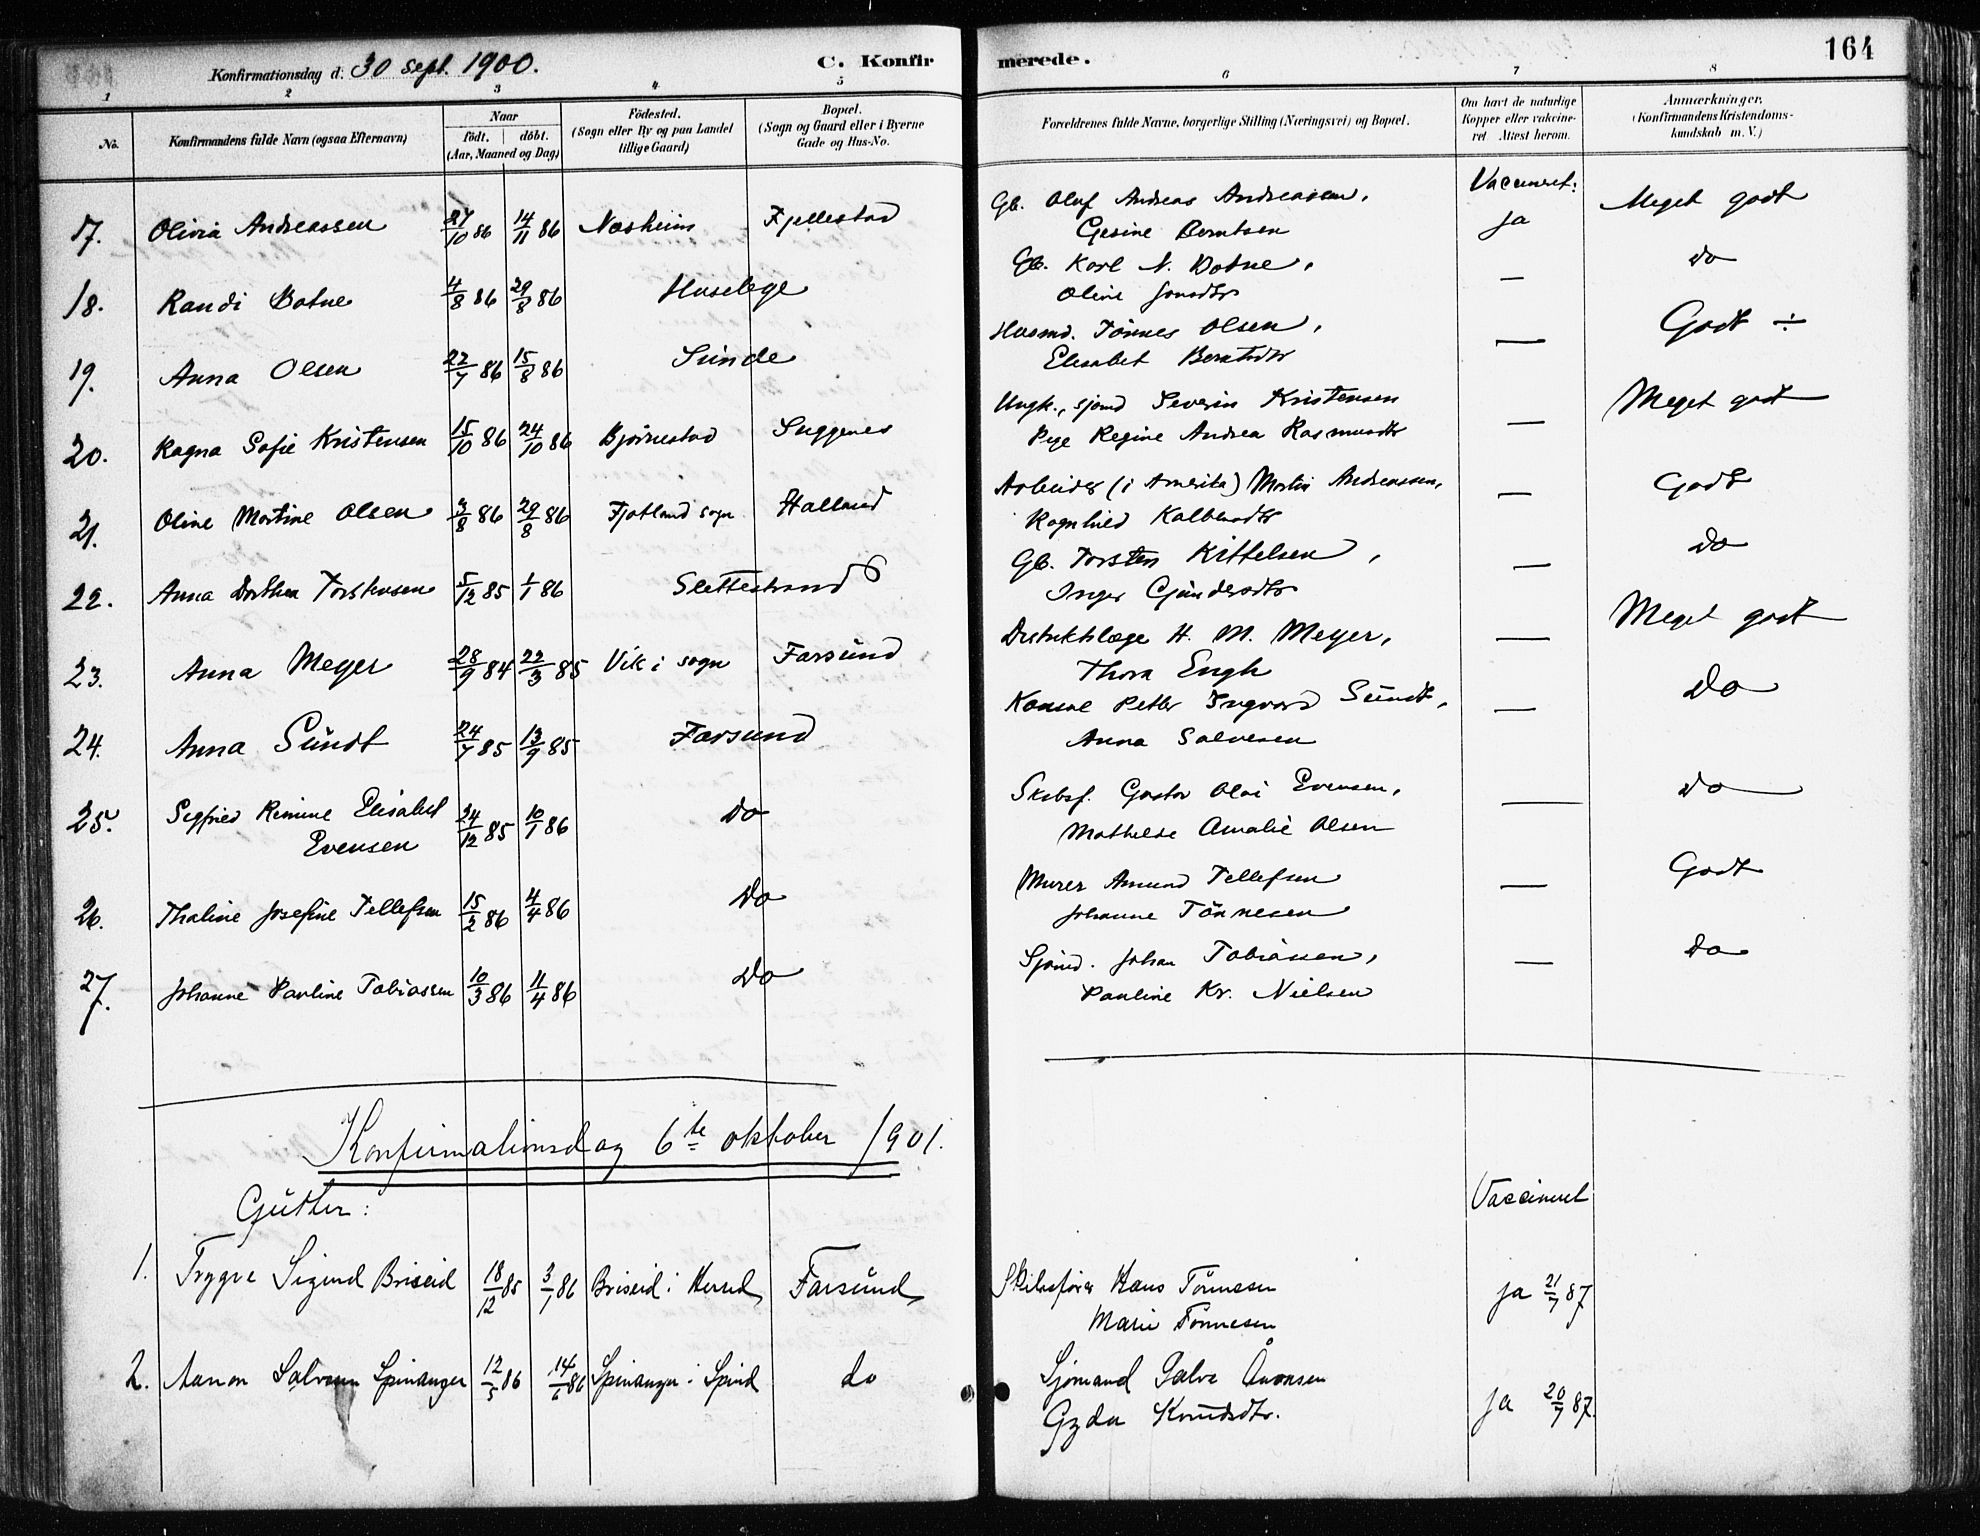 Konfirmationsdag d. 30 sept. 1900.
C. Konfirmerede.
164
1 2 3 4 5 6 7 8
No.
Konfirmandens fulde Navn (ogsaa Efternavn)
Naar
født. døbt.
(Aar, Maaned og Dag)
Fødested.
(Sogn eller By og paa Landet tillige Gaard)
Bopæl.
(Sogn og Gaard eller i Byerne Gade og Hus-No.
Forældrenes fulde Navne, borgerlige Stilling (Næringsvei) og Bopæl.
Om havt de naturlige Kopper eller vakcineret Attest herom.
Anmærkninger.
(Konfirmandens Kristendomskundskab m. V.)
Vaccineret:
17. Olivia Andreassen 27/10 86 14/11 86 Næsheim Fjellestad Gb. Oluf Andreas Andreassen, ja Meget godt
Gesine Berntsen
18. Randi Botne 4/8 86 29/8 86 Huselege Gb. Karl N. Botne, — do
Oline Jonsdtr
19. Anna Olsen 22/7 86 15/8 86 Sunde Husmd. Tönnes Olsen, — Godt ÷
Elisabet Berntsdtr
20. Ragna Sofie Kristensen 15/10 86 24/10 86 Bjørnestad Suggenes Ungk., sjømd Severin Kristensen — Meget godt
Pige Regine Andrea Rasmusdtr
21. Oline Martine Olsen 3/8 86 29/8 86 Fjotland sogn Halland Arbeider (i Amerika) Martin Andreassen, — Godt
Ragnhild Kalbensdtr
22. Anna Dorthea Torstensen 5/12 85 1/1 86 Slettestrand Gb. Torsten Kittelsen, — do
Inger Gundersdtr
23. Anna Meyer 28/9 84 22/3 85 Vik i sogn Farsund Distriktslæge H. M. Meyer, — Meget godt
Thora Engh
24. Anna Sundt 24/7 85 13/9 85 Farsund Konsul Petter Ingvard Sundt, — do
Anna Salvesen
25. Segfried Remine Elisabet Evensen 24/12 85 10/1 86 do Skibsf. Gustav Olai Evensen, — do
Mathilde Amalie Olsen
26. Thaline Josefine Tellefsen 15/2 86 4/4 86 do Murer Amund Tellefsen — Godt
Johanne Tönnesen
27. Johanne Pauline Tobiassen 10/3 86 11/4 86 do Sjömd. Johan Tobiassen, — do
Pauline Kr. Nielsen
Konfirmationsdag 6te oktober 1901.
Gutter:
Vaccineret
1. Trygve Sigurd Briseid 18/12 85 3/1 86 Briseid i Herred Farsund Skibsfører Hans Tönnesen ja 21/7 87
Marie Tönnesen
2. Aanon Salvesen Spinanger 12/5 86 14/6 86 Spinanger i Spind do Sjömand Salve Aanonsen ja 20/7 87.
Gyda Knudsdtr.